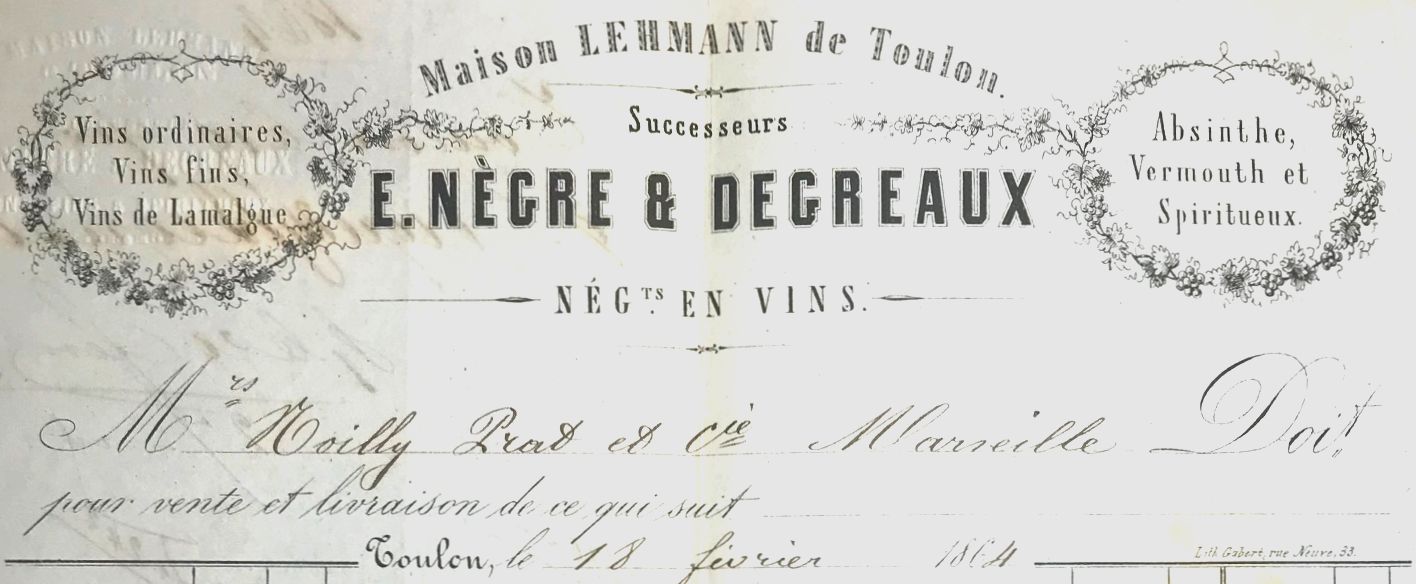 Maison LEHMANN de Toulon.
Successeurs
E. NÈGRE & DEGREAUX
NÉG.TS EN VINS.
Vins ordinaires,
Vins fins,
Vins de Lamalgue
Absinthe,
Vermouth et
Spiritueux.
Mrs Noilly Prat et Cie Marseille Doit
pour vente et livraison de ce qui suit
Toulon, le 18 février 1864
Lith. Gabert, rue Neuve, 33.